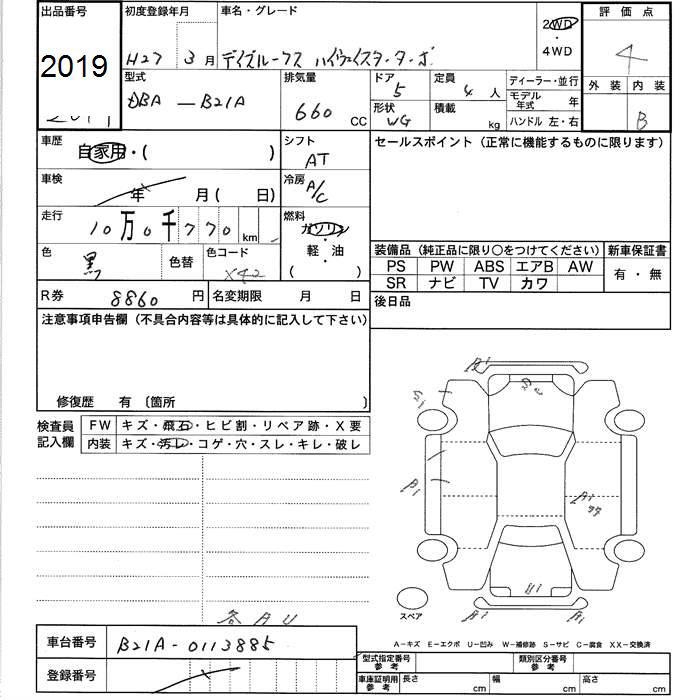 出品番号 初度登録年月 車名・グレード
2019
H27年 3月 デイズルークス ハイウェイスターターボ 2WD ・ 4WD
評価点 4
外装 内装 B
型式 DBA-B21A
排気量 660 CC
ドア 5 定員 4人
形状 WG 積載 kg
ディーラー・並行
モデル年式 年
ハンドル 左・右
車歴 自家用・( )
シフト AT
セールスポイント(正常に機能するものに限ります)
車検 年 月( 日)
冷房 A/C
走行 10万0千770km
燃料 ガソリン・軽・油 ( )
色 黒 色替 色コード
装備品(純正品に限り○をつけてください) 新車保証書
PS PW ABS エアB AW 有・無
SR ナビ TV カワ
R券 8860円 名変期限 月 日
後日品
注意事項申告欄(不具合内容等は具体的に記入して下さい)
修復歴 有 〔箇所 〕
検査員記入欄
FW キズ・飛石・ヒビ割・リペア跡・X要
内装 キズ・汚レ・コゲ・穴・スレ・キレ・破レ
スペア
各AU
A-キズ E-エクボ U-凹み W-補修跡 S-サビ C-腐食 XX-交換済
車台番号 B21A-0113885
登録番号
型式指定番号参考 類別区分番号参考
車庫証明用参考 長さ cm 幅 cm 高さ cm